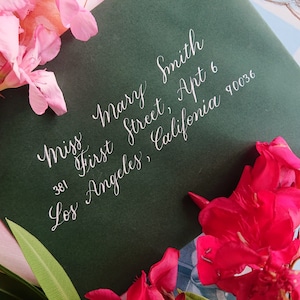 Miss Mary Smith
381 First Street, Apt 6
Los Angeles, Califonia 90036